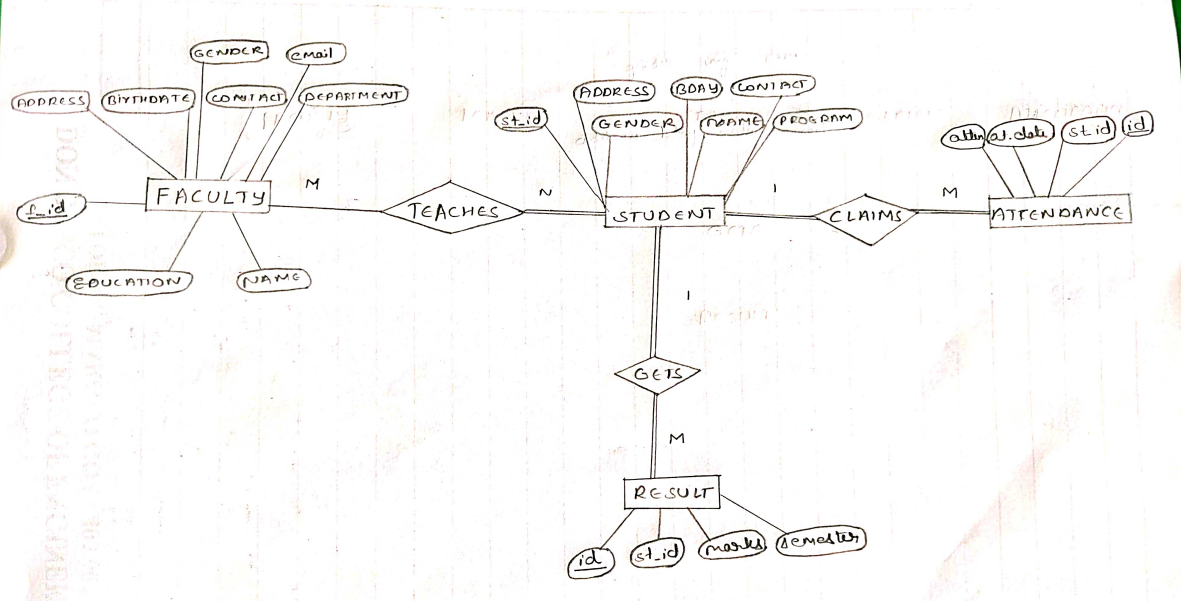 GENDER
email
ADDRESS
BIRTHDATE
CONTACT
DEPARTMENT
FACULTY
f_id
EDUCATION
NAME
M
TEACHES
N
st_id
ADDRESS
BDAY
CONTACT
GENDER
NAME
PROGRAM
STUDENT
1
CLAIMS
M
atten
at.date
st id
id
ATTENDANCE
1
GETS
M
RESULT
id
st_id
marks
semester